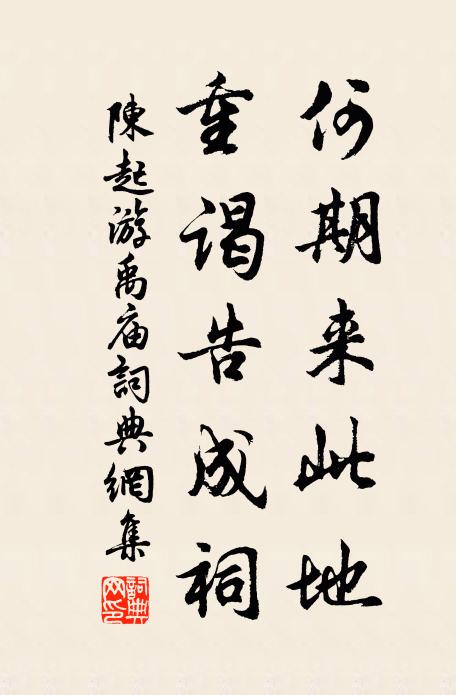 何期来此地
重谒告成祠
陳起游禹庙詞典網集
詞典网印